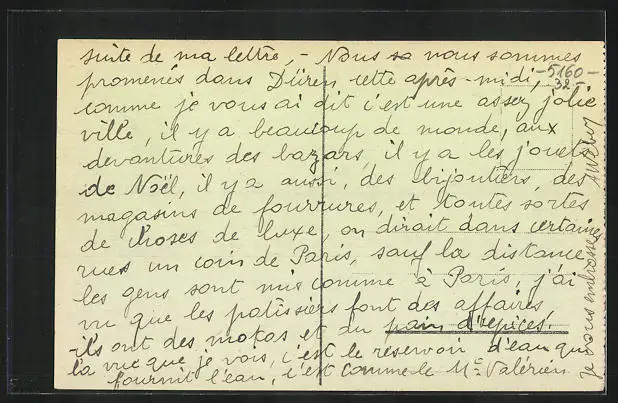 suite de ma lettre, - Nous sa nous sommes
promenés dans Düren cette après-midi,
comme je vous ai dit c'est une assez jolie
ville, il y a beaucoup de monde, aux
devantures des bazars, il y a les jouets
de Noël, il y a aussi, des bijoutiers, des
magasins de fourrures, et toutes sortes
de choses de luxe, on dirait dans certaines
rues un coin de Paris, sauf la distance,
les gens sont mis comme à Paris, j'ai
vu que les patissiers font des affaires
-ils ont des mokas et du pain d'épices.
la vue que je vois, c'est le réservoir d'eau qui
fournit l'eau, c'est comme le Mt Valérien
-5160-
32-
Je vous embrasse